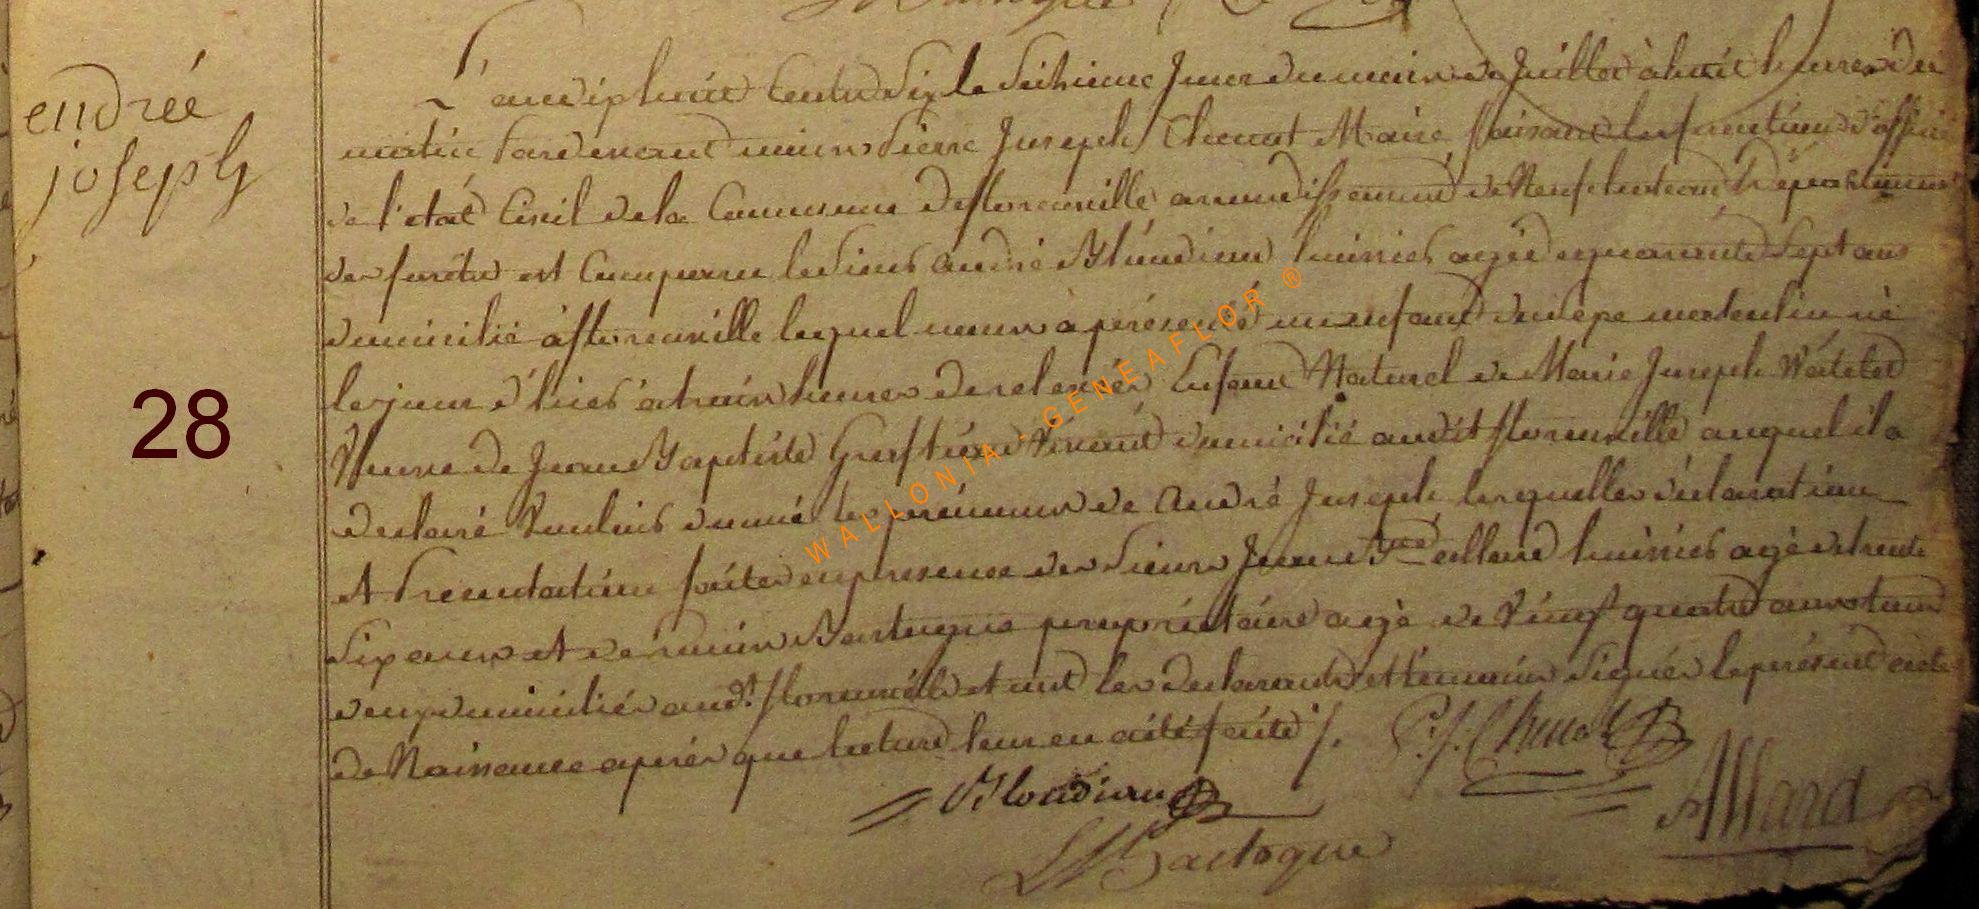 endrée
joseph
28
L'an dix huit Cent Six le Seizieme Jour du mois de Juillet à huit heures du
matin Pardevant nous Pierre Joseph Chenot Maire faisant les fonctions d'officier
de l'etat Civil de la Commune de florenville arrondissement de Neufchateau Département
des forets est Comparu le Sieur andré Blondiau huissier agé de quarante Sept ans
domicilié à florenville lequel nous a présenté un enfant du Sexe masculin né
le jour d'hier à trois heures de relevée Enfant Naturel de Marie Joseph Watelet
Veuve de Jean Baptiste vivant domicilié audit florenville auquel il a
declaré Vouloir donné les prénoms de André Joseph lesquelles déclaration
et Presentation faites en presence des Sieurs Jean Bte allard huissier agé de trente
Six ans et de Bastogne propriétaire agé de Vingt quatre ans tous
deux domiciliés aud.t florenville et ont les declarants et témoins Signés le présent acte
de Naissance après que lecture leur en a été faite ./.
P:J: Chenot
Blondiau
Allard
Bastogne
WALLONIA - GENEAFLOR ®